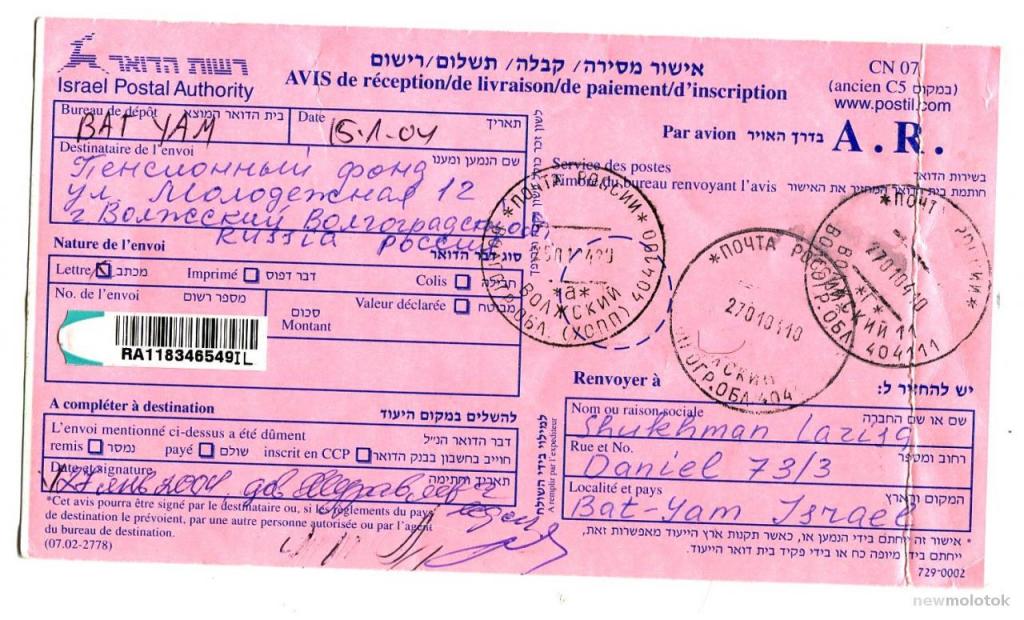 רשות הדואר
Israel Postal Authority
אישור מסירה/ קבלה/ תשלום/רישום
AVIS de réception/de livraison/de paiement/d'inscription
CN 07
(ancien C5 במקום)
www.postil.com
Par avion בדרך האויר A.R.
Bureau de dépôt בית הדואר המוצא
BAT YAM
Date תאריך
15.1.04
Destinataire de l'envoi שם הנמען ומענו
Пенсионный фонд
ул. Молодежная 12
г Волжский Волгоградская
RUSSIA Россия
Service des postes בשירות הדואר
Timbre du bureau renvoyant l'avis חותמת בית הדואר המחזיר את האישור
Nature de l'envoi סוג דבר הדואר
Lettre מכתב Imprimé דבר דפוס Colis חבילה
No. de l'envoi מספר רשום
סכום
Montant
Valeur déclarée מבטח
RA118346549IL
*ПОЧТА РОССИИ*
*а*
ВОЛЖСКИЙ
ОБЛ. (ХОПП) 404
*ПОЧТА РОССИИ
2701041
ОГР.ОБЛ 404
*ПОЧТ
2701041
*Г*
ВОЛЖСКИЙ 11
ВОЛГОГР.ОБЛ 404111
A compléter à destination להשלים במקום היעוד
L'envoi mentionné ci-dessus a été dûment דבר הדואר הנ"ל
remis נמסר payé שולם inscrit en CCP חוייב בחשבון בבנק הדואר
Date et signature תאריך וחתימה
27 янв 2004
*Cet avis pourra être signé par le destinataire ou, si les règlements du pays
de destination le prévoient, par une autre personne autorisée ou par l'agent
du bureau de destination.
(07.02-2778)
למילוי בידי השולח
A remplir par l'expéditeur
Renvoyer à יש להחזיר ל:
Nom ou raison sociale שם או שם החברה
Shukhman Lazisa
Rue et No. רחוב ומספר
Daniel 73/3
Localité et pays המקום והארץ
Bat-Yam Israel
* אישור זה ייחתם בידי הנמען או, כאשר תקנות ארץ הייעוד מאפשרות זאת,
ייחתם בידי מיופה כח או בידי פקיד בית דואר הייעוד.
729-0002
newmolotok